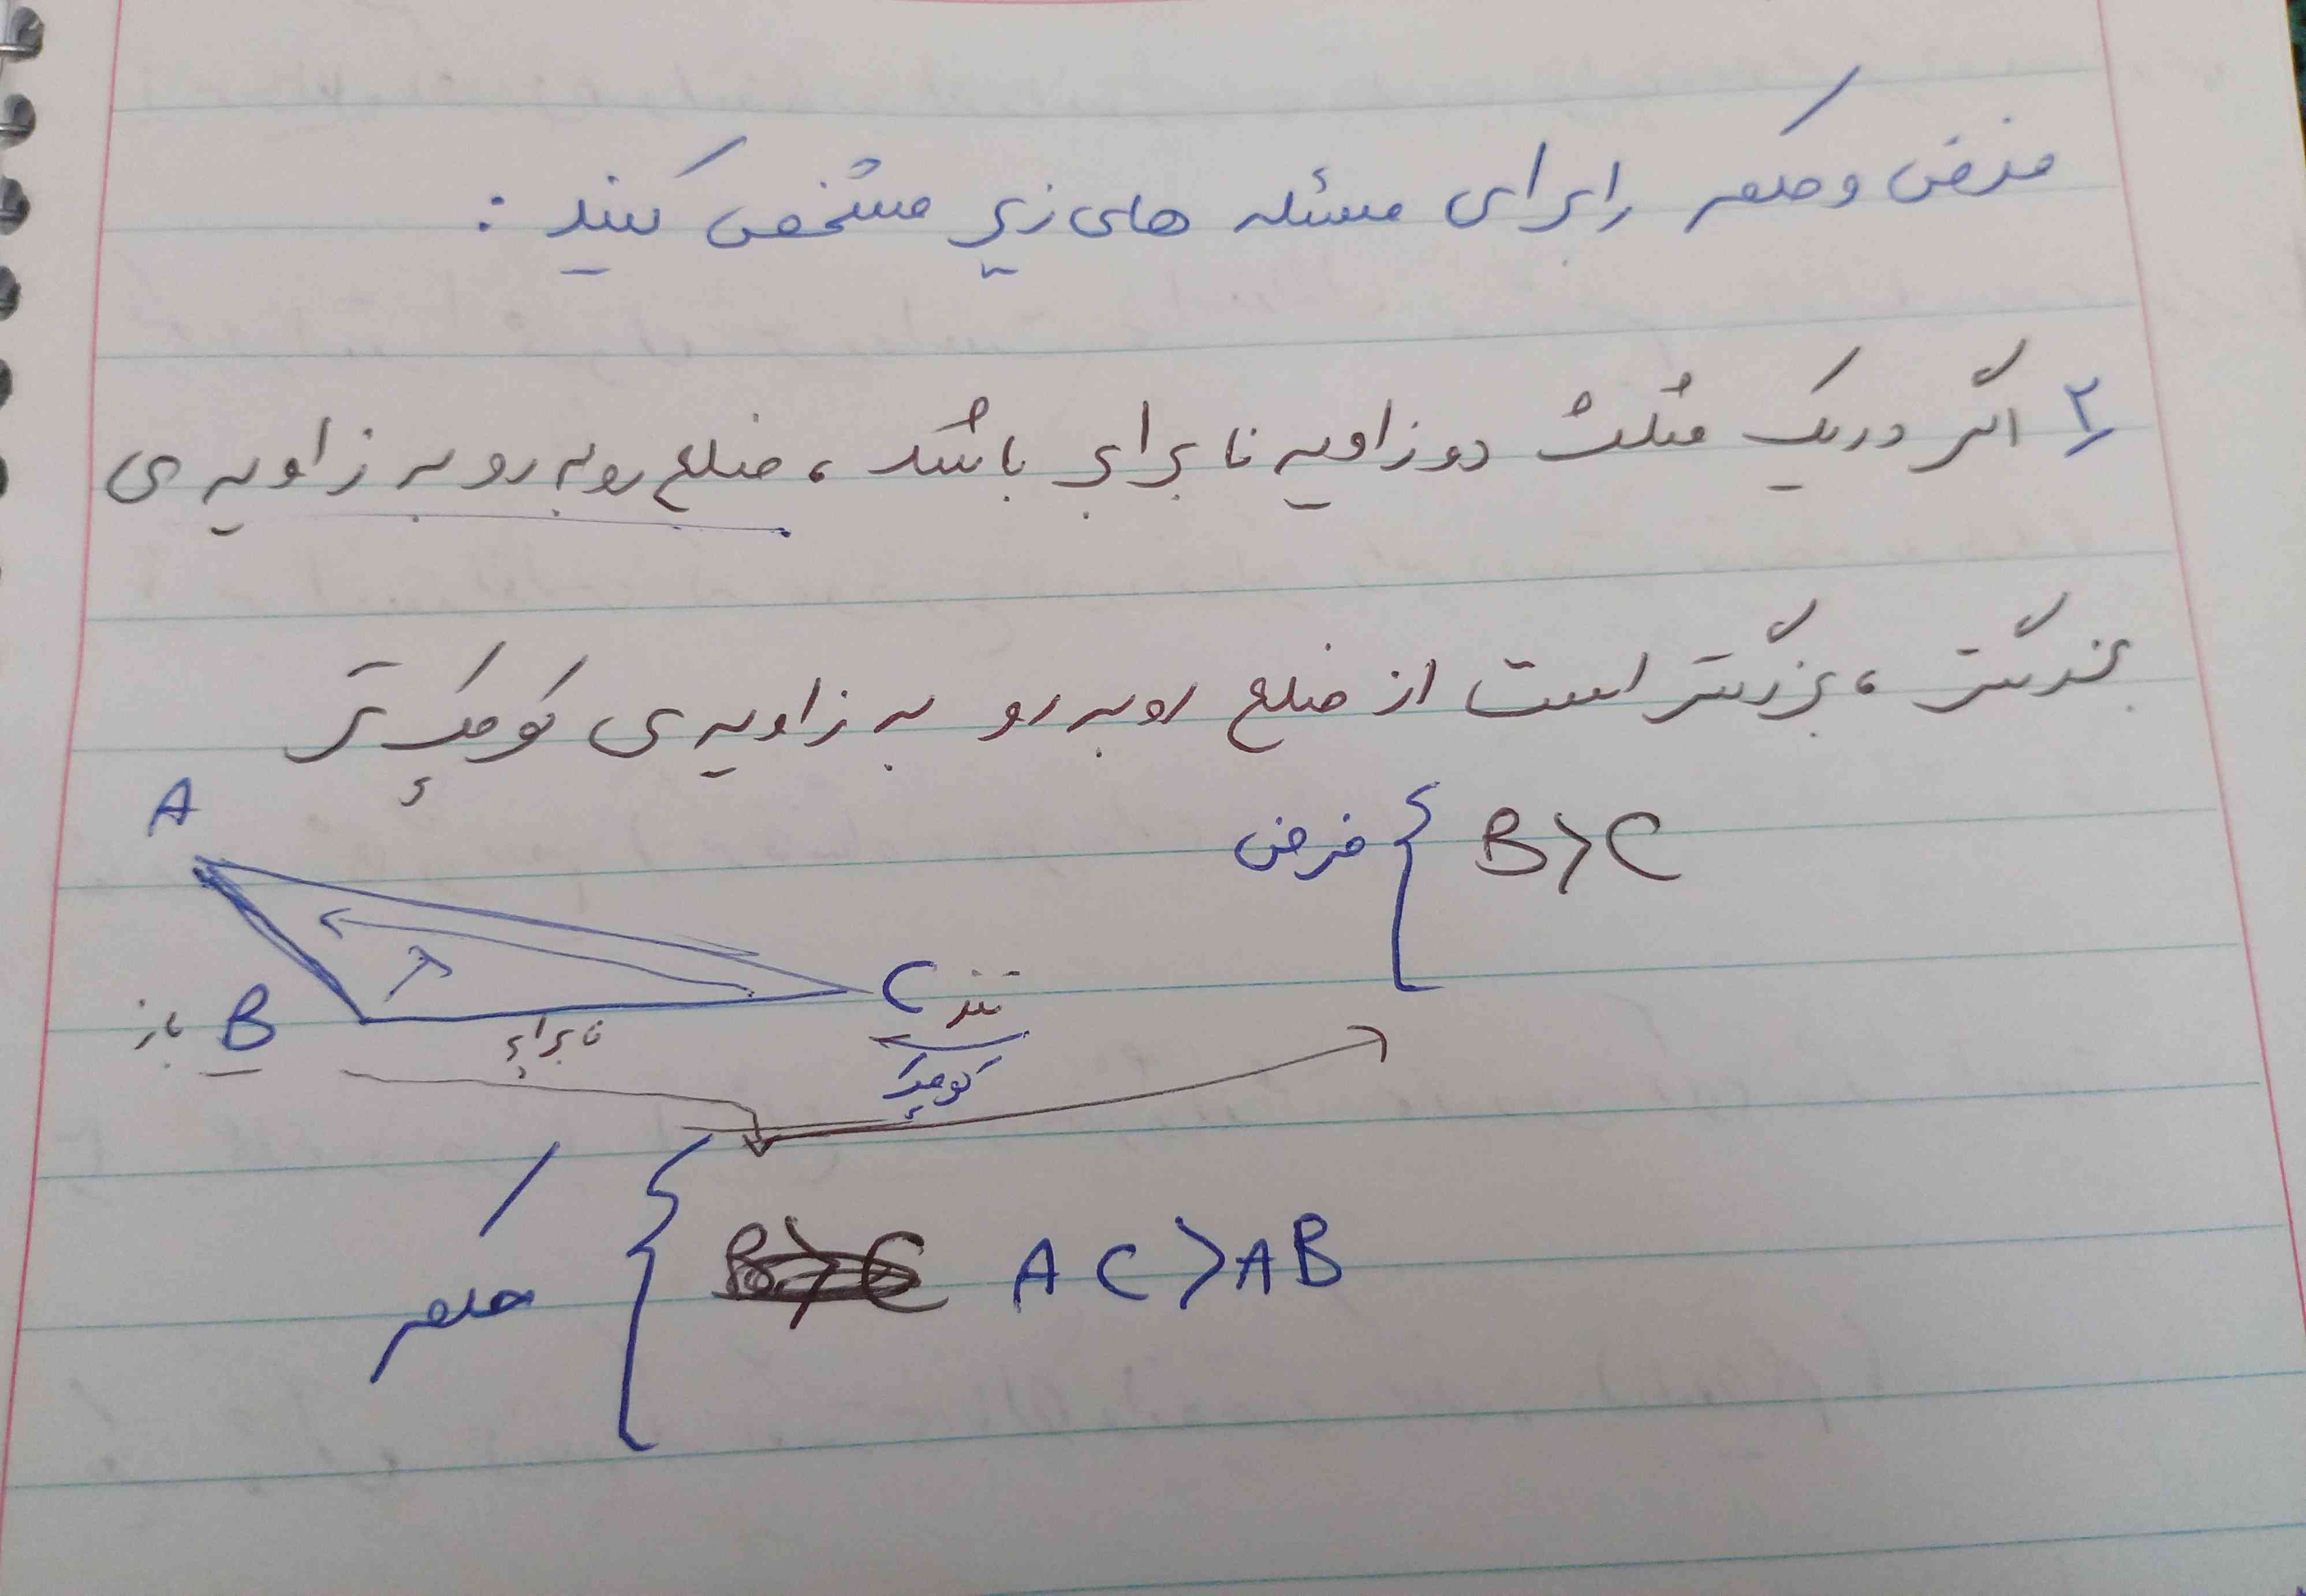 فرض و حکم را برای مسئله های زیر مشخص کنید :
۲ اگر در یک مثلث دو زاویه نا برابر باشد ، ضلع رو به رو به زاویه ی
بزرگتر ، بزرگتر است از ضلع رو به رو به زاویه ی کوچک تر
A
فرض { B>C
C تند
B باز
نابرابر
کوچک
حکم { B>C AC>AB